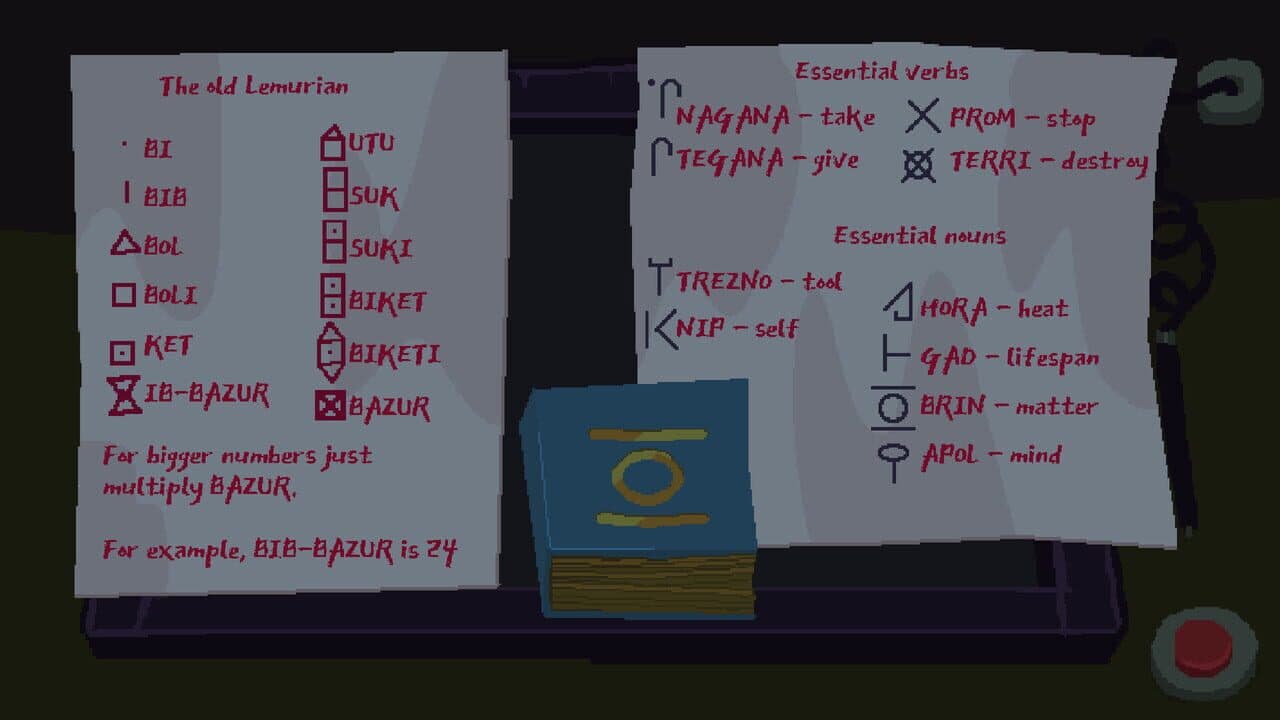 The old Lemurian
BI
BIB
BOL
BOLI
KET
IB-BAZUR
UTU
SUK
SUKI
BIKET
BIKETI
BAZUR
For bigger numbers just
multiply BAZUR.
For example, BIB-BAZUR is 24
Essential verbs
NAGANA – take
TEGANA – give
PROM – stop
TERRI – destroy
Essential nouns
TREZNO – tool
NIP – self
HORA – heat
GAD – lifespan
BRIN – matter
APOL – mind